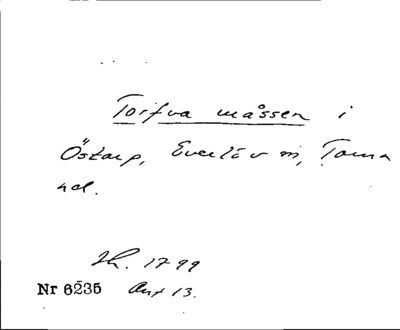 Torfva måssen i
Östarp, Everlöv sn, Torna
hd.
Sk. 1799
Nr 6235 Akt 13.